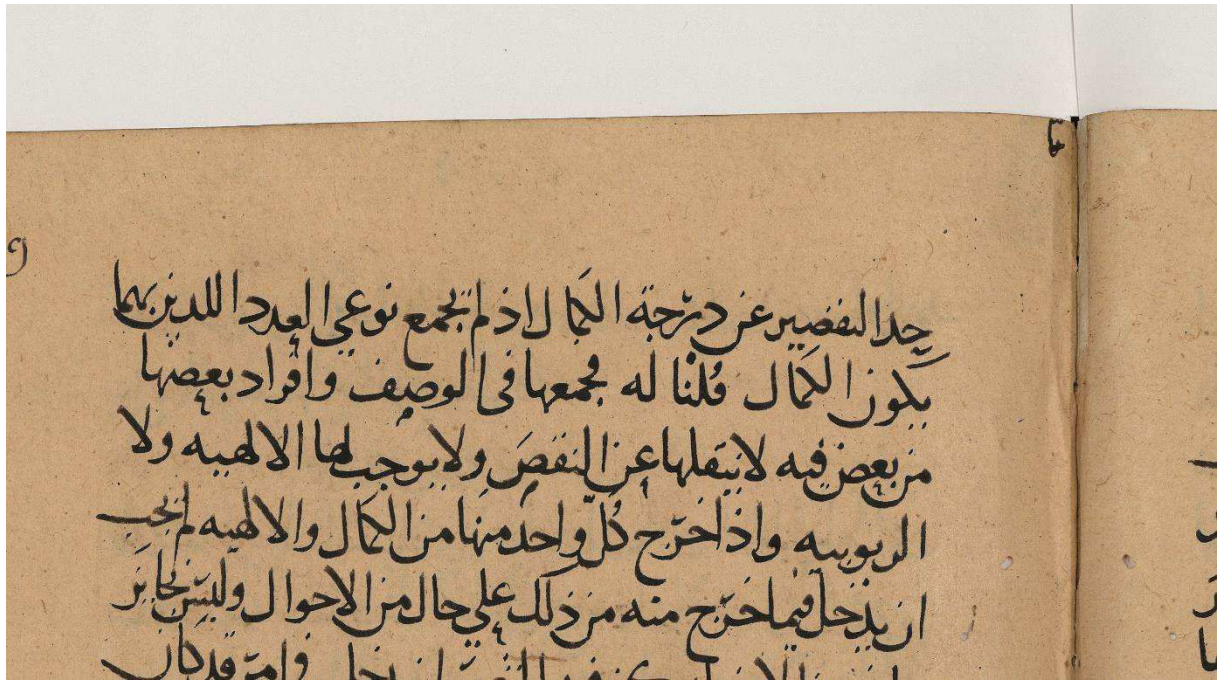 حد التقصير عن درجة الكمال اذ لم تجمع نوعي العدد اللذين بهما
يكون الكمال قلنا له فجمعها في الوصف وافراد بعضها
من بعض فيه لا ينقلها عن النقص ولا يوجب لها الالهيه ولا
الربوبيه واذا خرج كل واحد منها من الكمال والالهيه لم يجب
ان يدخل فيما خرج منه من ذلك علي حال من الاحوال وليس بجايز